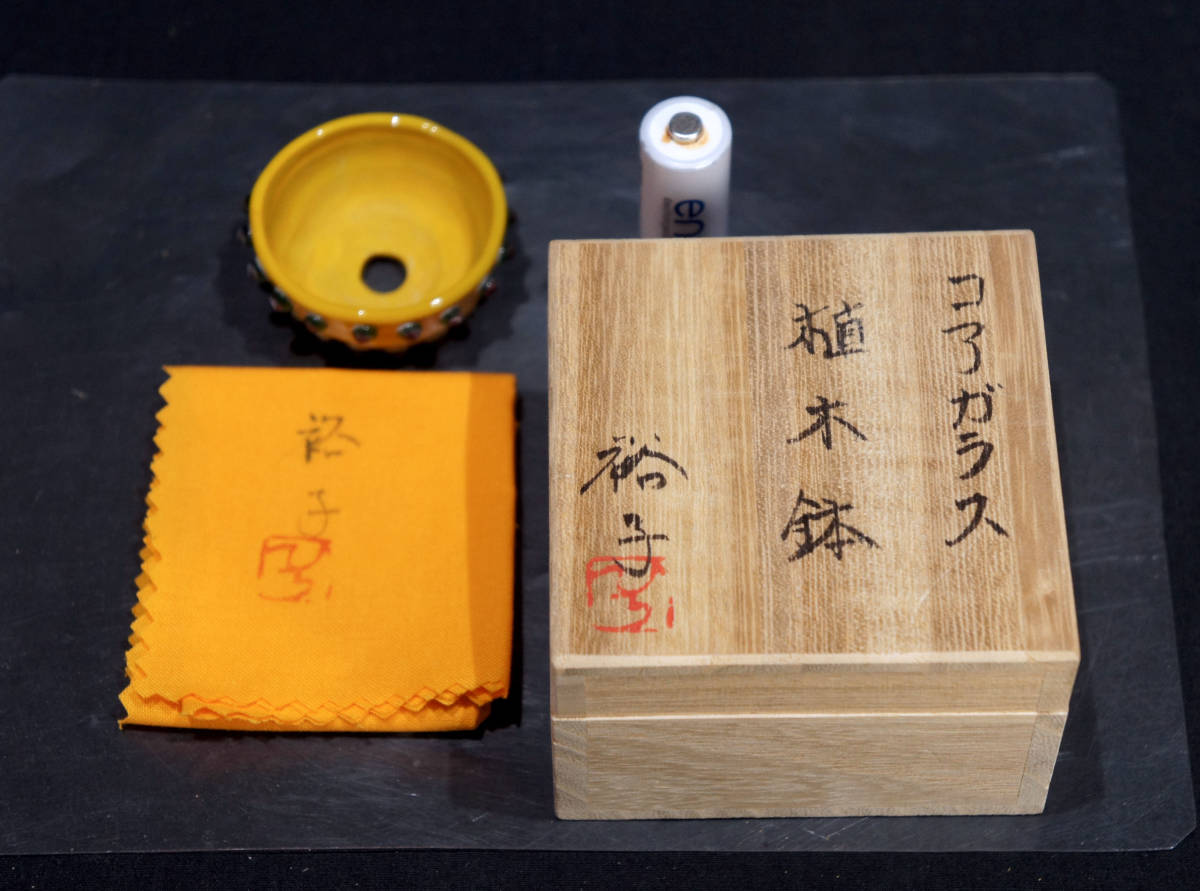 コアガラス
植木鉢
裕子
裕子
en